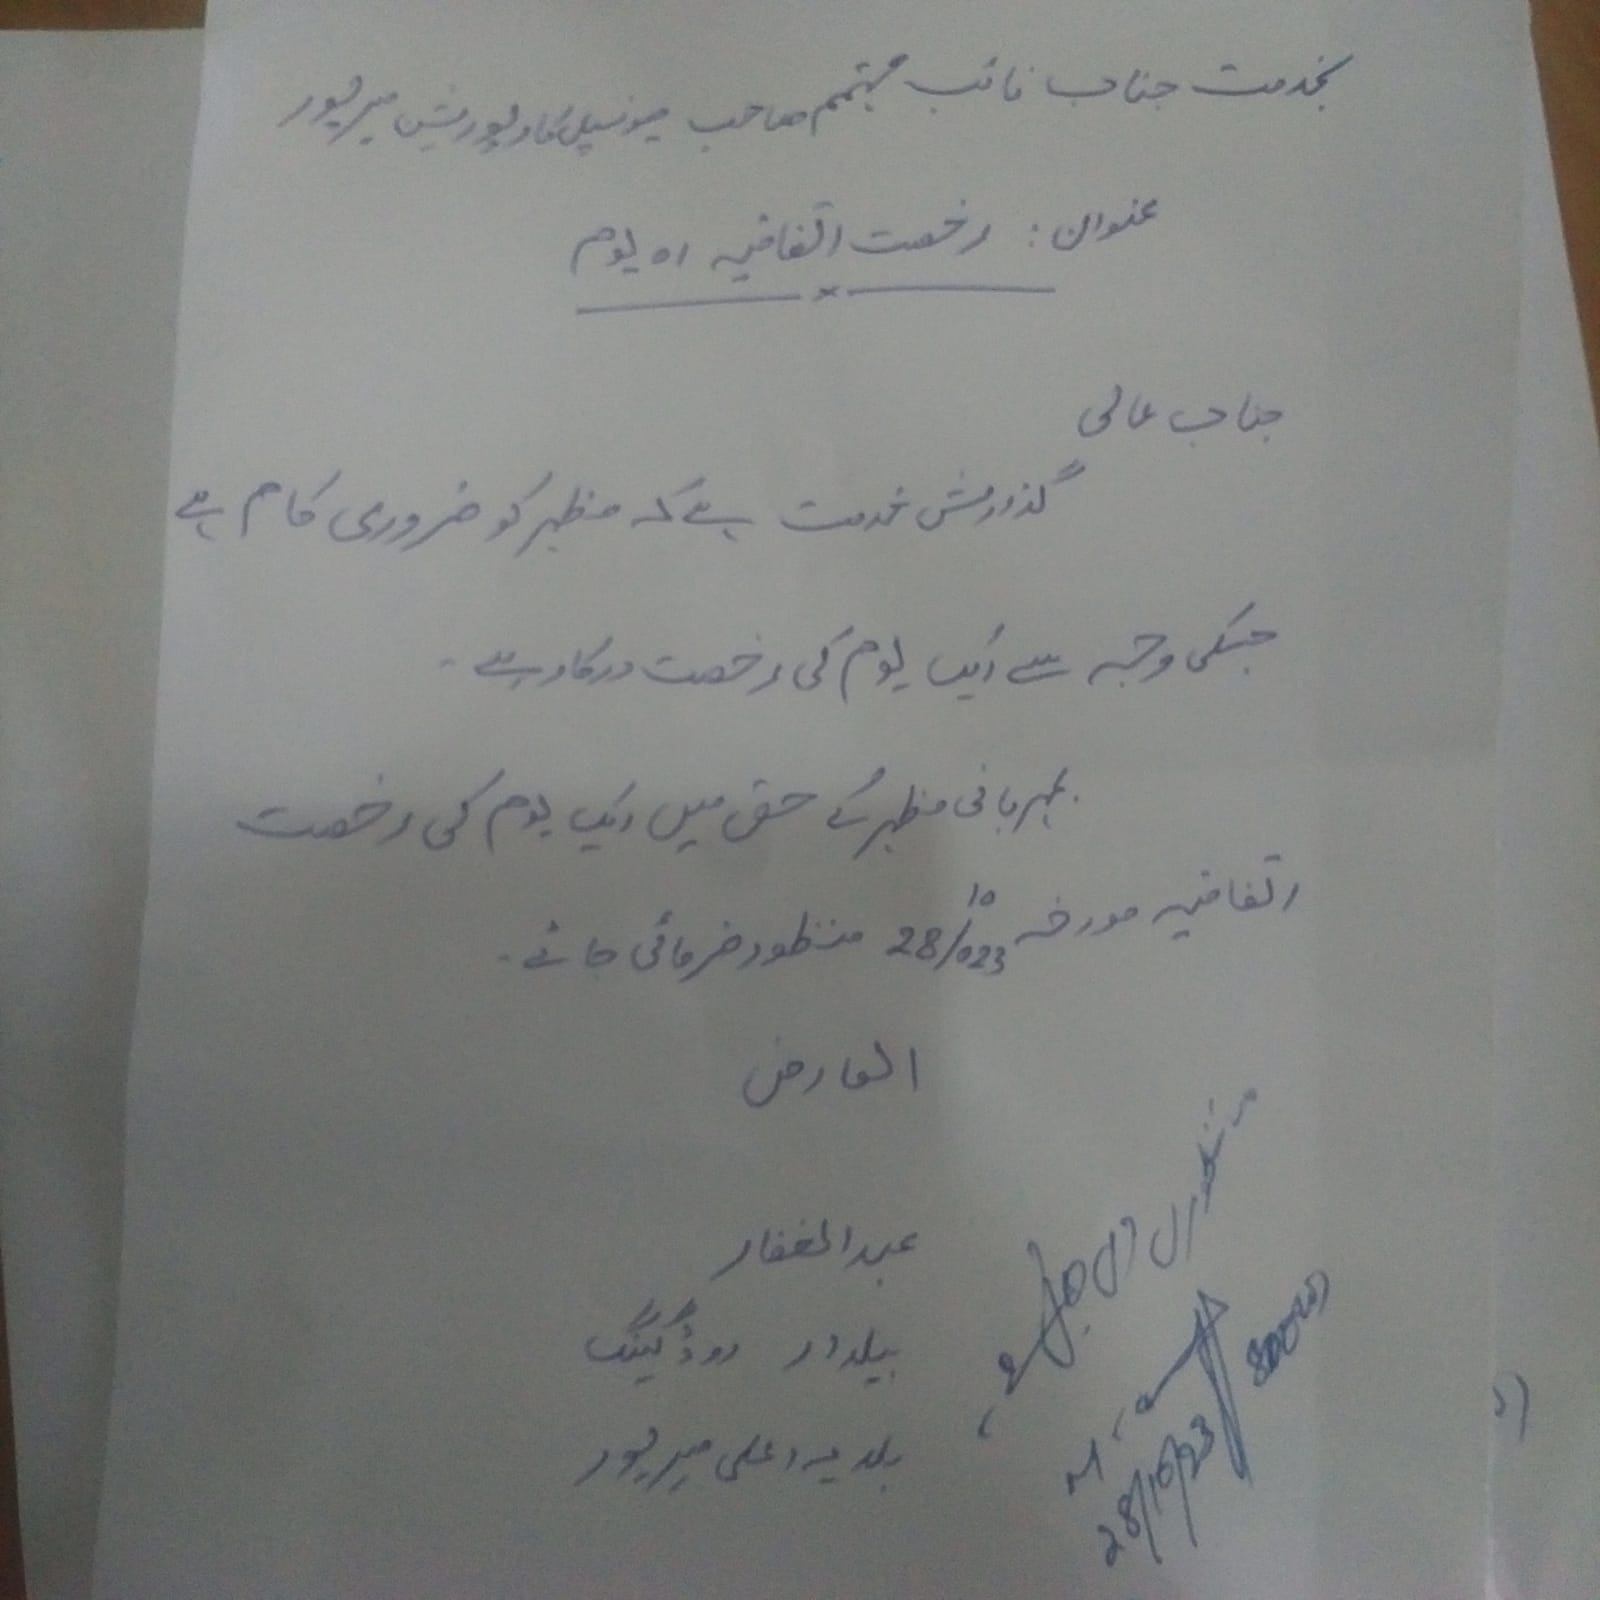 بخدمت جناب نائب مہتمم صاحب میونسپل کارپوریشن میرپور
عنوان: رخصت اتفاقیہ 01 یوم
جناب عالی
گذارش خدمت ہے کہ مظہر کو ضروری کام ہے
جسکی وجہ سے ایک یوم کی رخصت درکار ہے۔
بمہربانی مظہر کے حق میں ایک یوم کی رخصت
اتفاقیہ مورخہ 28/10/023 منظور فرمائی جائے۔
العارض
عبدالغفار
بیلدار روڈ گینگ
بلدیہ اعلی میرپور
28/10/23